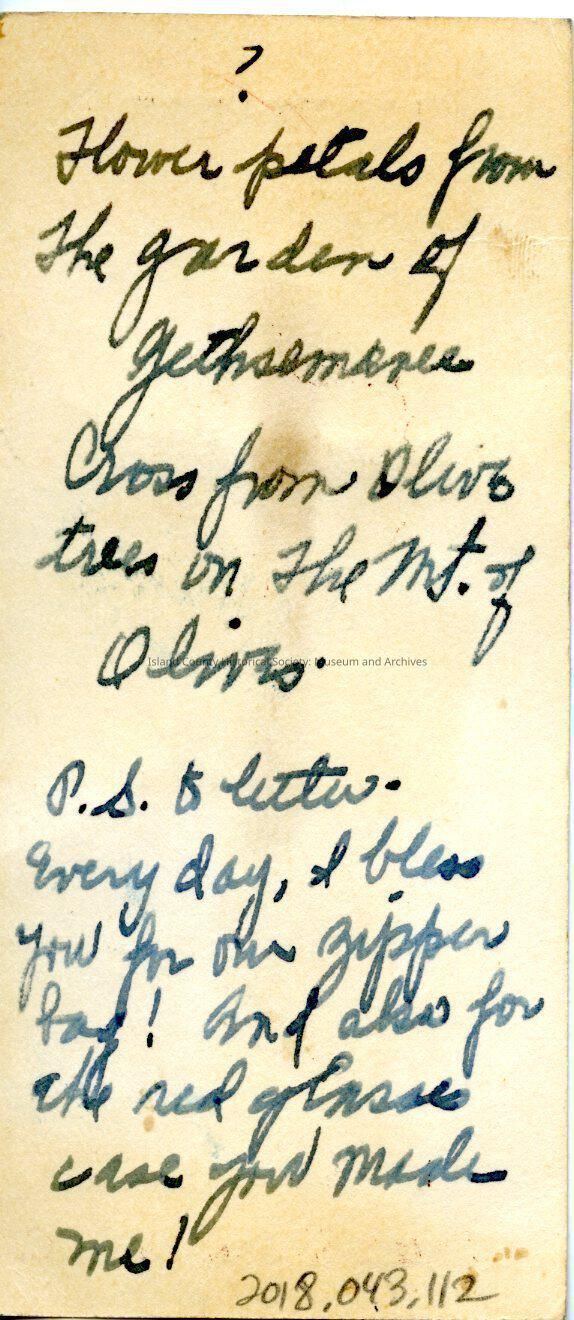 ?
Flower petals from
The garden of
Gethsemanee
Cross from Olive
trees on The Mt. of
Olives.
Island County Historical Society: Museum and Archives
P.S. to letter.
Every day, I bless
you for our zipper
bag! And also for
the red glasses
case you made
me!
2018.043.112